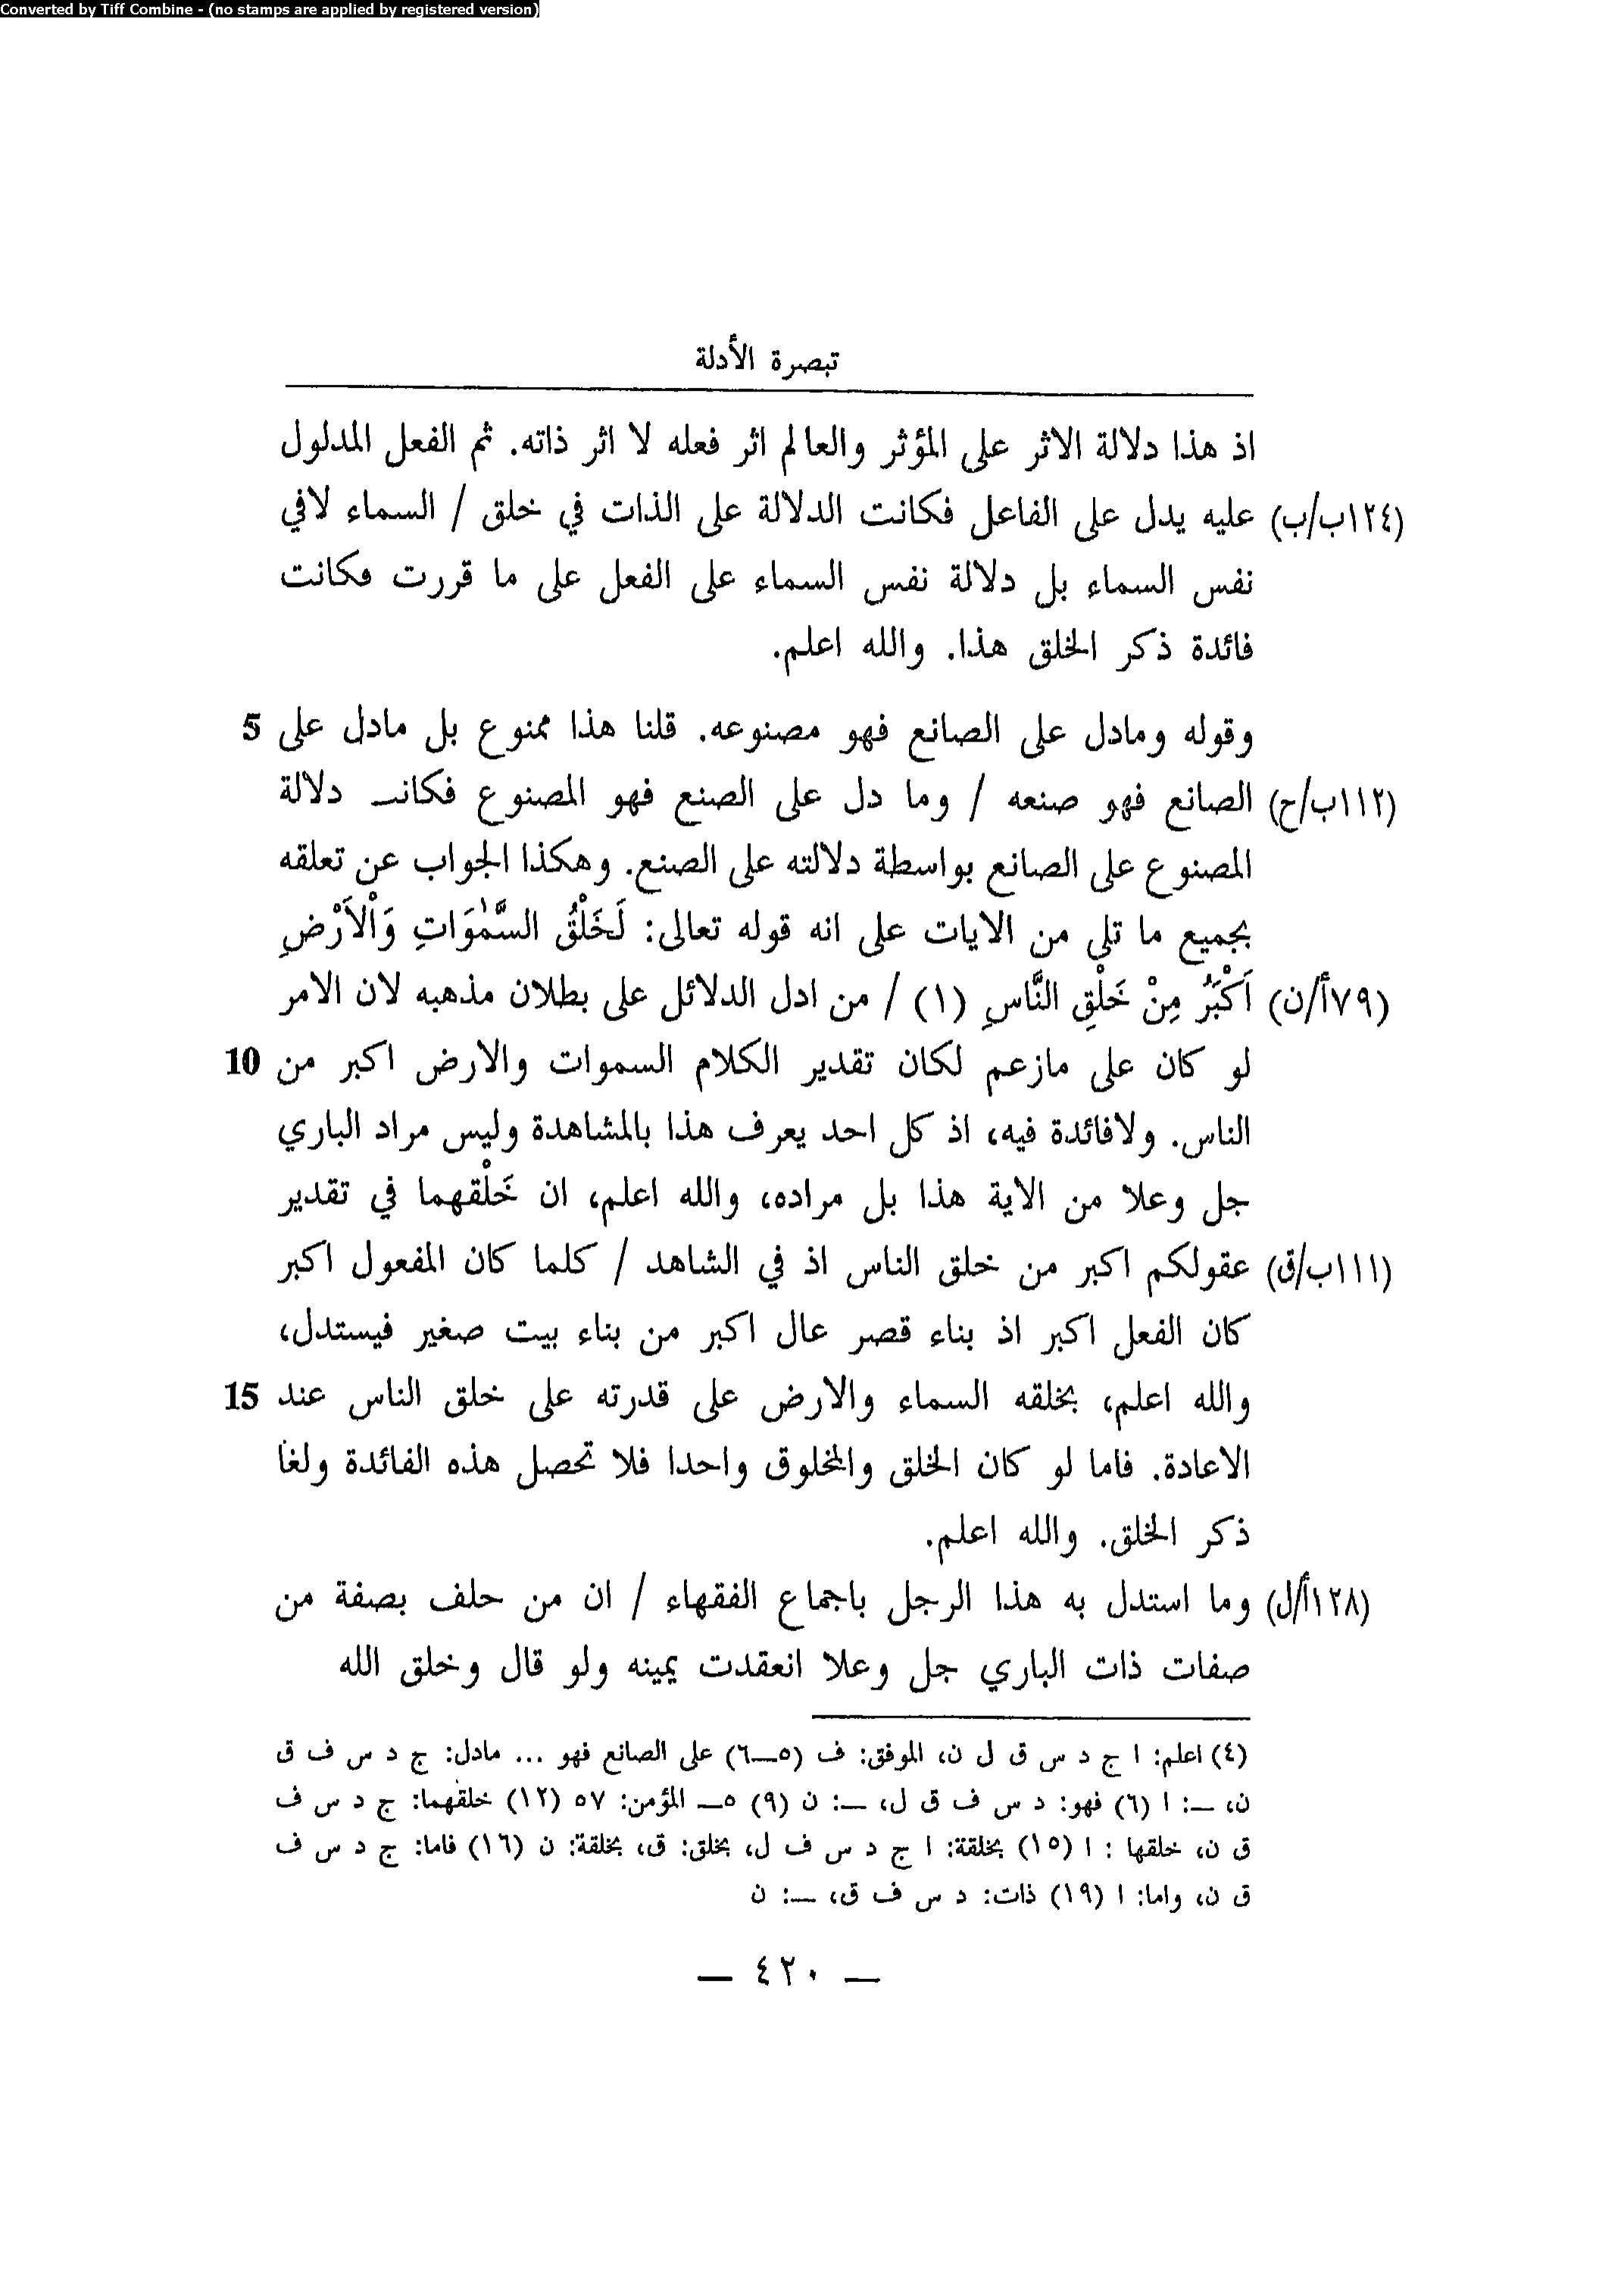 Converted by Tiff Combine - (no stamps are applied by registered version)
تبصرة الأدلة
اذ هذا دلالة الاثر على المؤثر والعالم اثر فعله لا اثر ذاته. ثم الفعل المدلول
(١٢٤ب/ب) عليه يدل على الفاعل فكانت الدلالة على الذات في خلق / السماء لافي
نفس السماء بل دلالة نفس السماء على الفعل على ما قررت فكانت
فائدة ذكر الخلق هذا. والله اعلم.
وقوله ومادل على الصانع فهو مصنوعه. قلنا هذا ممنوع بل مادل على 5
(١١٢ب/ح) الصانع فهو صنعه / وما دل على الصنع فهو المصنوع فكانت دلالة
المصنوع على الصانع بواسطة دلالته على الصنع. وهكذا الجواب عن تعلقه
بجميع ما تلى من الايات على انه قوله تعالى: لَخَلْقُ السَّمٰوَاتِ وَاْلاَرْضِ
(٧٩أ/ن) اَكْبَرُ مِنْ خَلْقِ النَّاسِ (١) / من ادل الدلائل على بطلان مذهبه لان الامر
لو كان على مازعم لكان تقدير الكلام السموات والارض اكبر من 10
الناس. ولافائدة فيه، اذ كل احد يعرف هذا بالمشاهدة وليس مراد الباري
جل وعلا من الاية هذا بل مراده، والله اعلم، ان خَلْقهما في تقدير
(١١١ب/ق) عقولكم اكبر من خلق الناس اذ في الشاهد / كلما كان المفعول اكبر
كان الفعل اكبر اذ بناء قصر عال اكبر من بناء بيت صغير فيستدل،
والله اعلم، بخلقه السماء والارض على قدرته على خلق الناس عند 15
الاعادة. فاما لو كان الخلق والمخلوق واحدا فلا تحصل هذه الفائدة ولغا
ذكر الخلق. والله اعلم.
(١٢٨أ/ل) وما استدل به هذا الرجل باجماع الفقهاء / ان من حلف بصفة من
صفات ذات الباري جل وعلا انعقدت يمينه ولو قال وخلق الله
(٤) اعلم: ا ج د س ق ل ن، الموفق: ف (٥ــ٦) على الصانع فهو ... مادل: ج د س ف ق
ن، ــ: ا (٦) فهو: د س ف ق ل، ــ: ن (٩) ٥ــ المؤمن: ٥٧ (١٢) خلقهما: ج د س ف
ق ن، خلقها : ا (١٥) بخلقة: ا ج د س ف ل، بخلق: ق، بخلقة: ن (١٦) فاما: ج د س ف
ق ن، واما: ا (١٩) ذات: د س ف ق، ــ: ن
— ٤٢٠ —